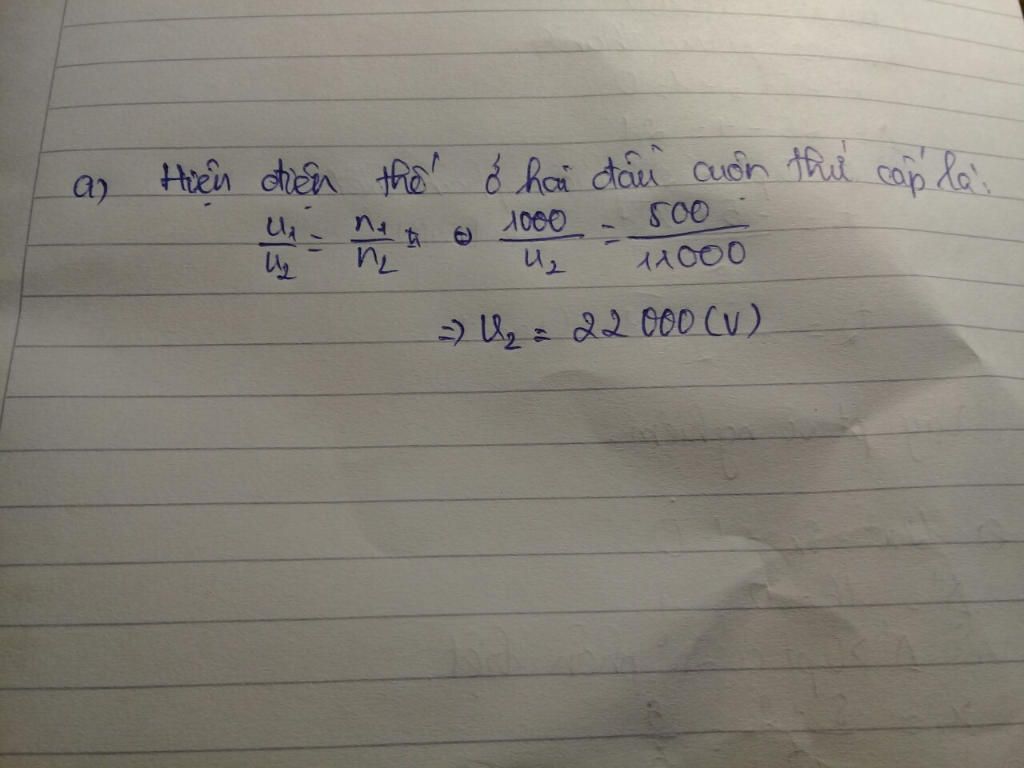 a) Hiện điện thế ở hai đầu cuôn thứ cấp là:
U₁/U₂ = n₁/n₂ ⇔ 1000/U₂ = 500/11000
=> U₂ = 22 000 (V)